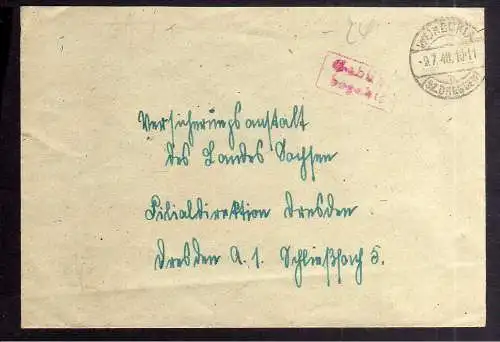 24
Gebühr
bezahlt
-9.7.48.10-11
(BZ.DRESDEN)
Versicherungsanstalt
des Landes Sachsen
Filialdirektion Dresden
Dresden A. 1. Schließfach 5.